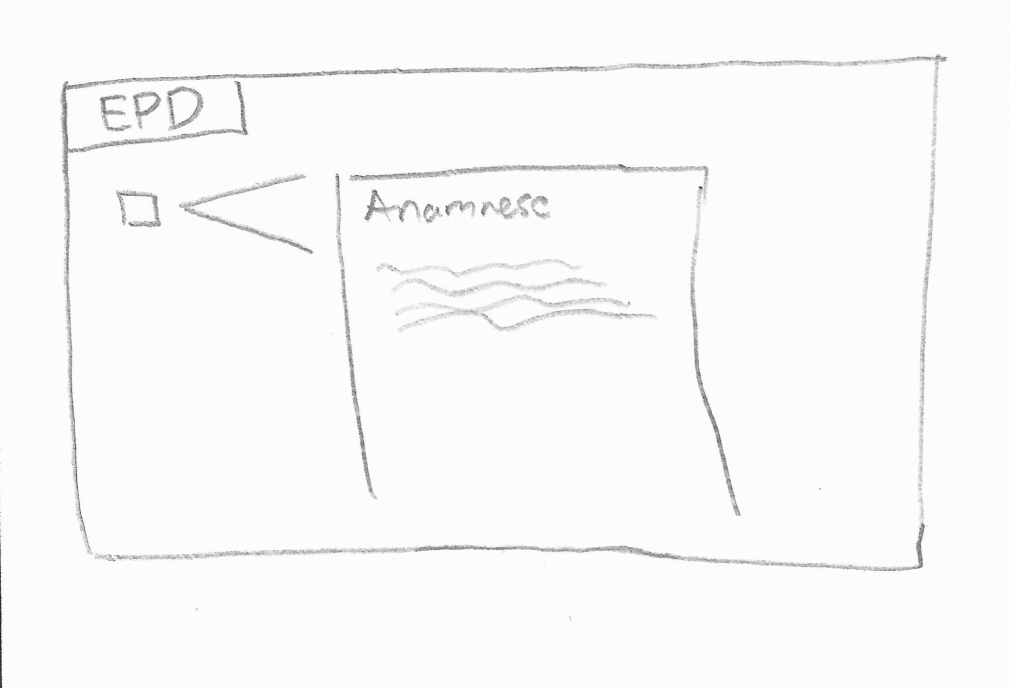 EPD
Anamnese